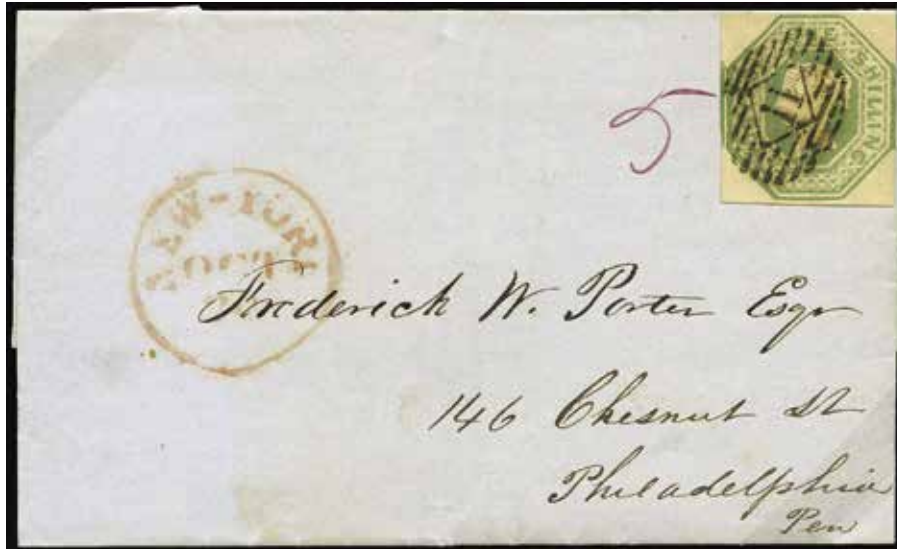 ONE SHILLING
5
NEW-YORK
OCT
Frederick W. Porter Esqr
146 Chesnut St
Philadelphia
Pen